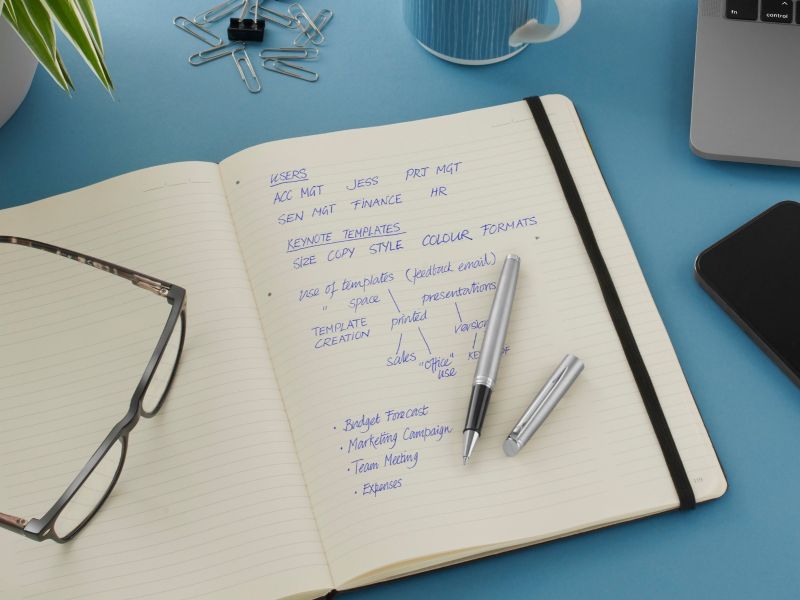 fn
control
USERS
ACC MGT JESS PRJ MGT
SEN MGT FINANCE HR
KEYNOTE TEMPLATES
SIZE COPY STYLE COLOUR FORMATS
use of templates (feedback email)
" space presentations
TEMPLATE CREATION printed
sales "office" use
• Budget Forecast
• Marketing Campaign
• Team Meeting
• Expenses